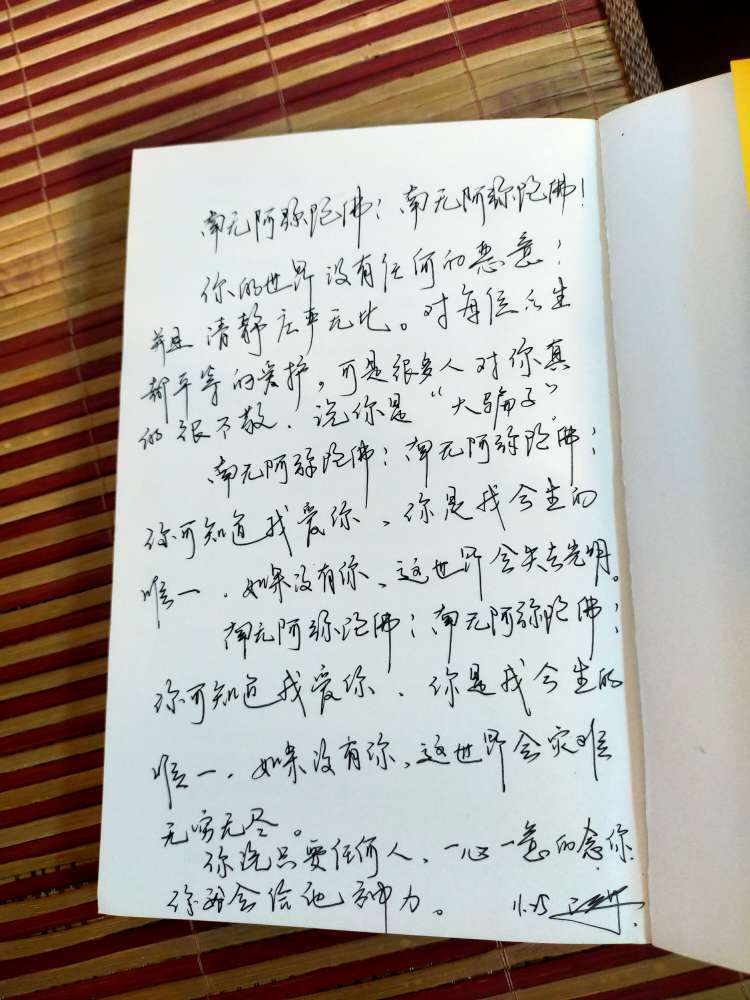 南无阿弥陀佛！南无阿弥陀佛！
你的世界没有任何的恶意！
并且清静庄严无比。对每位众生
都平等的爱护，可是很多人对你真
的很不敬．说你是“大骗子”．
南无阿弥陀佛！南无阿弥陀佛！
你可知道我爱你、你是我今生的
唯一．如果没有你、这世界会失去光明。
南无阿弥陀佛！南无阿弥陀佛！
你可知道我爱你．你是我今生的
唯一．如果没有你、这世界会灾难
无穷无尽。
你说只要任何人、一心一意的念你
你都会给他神力。 11.25